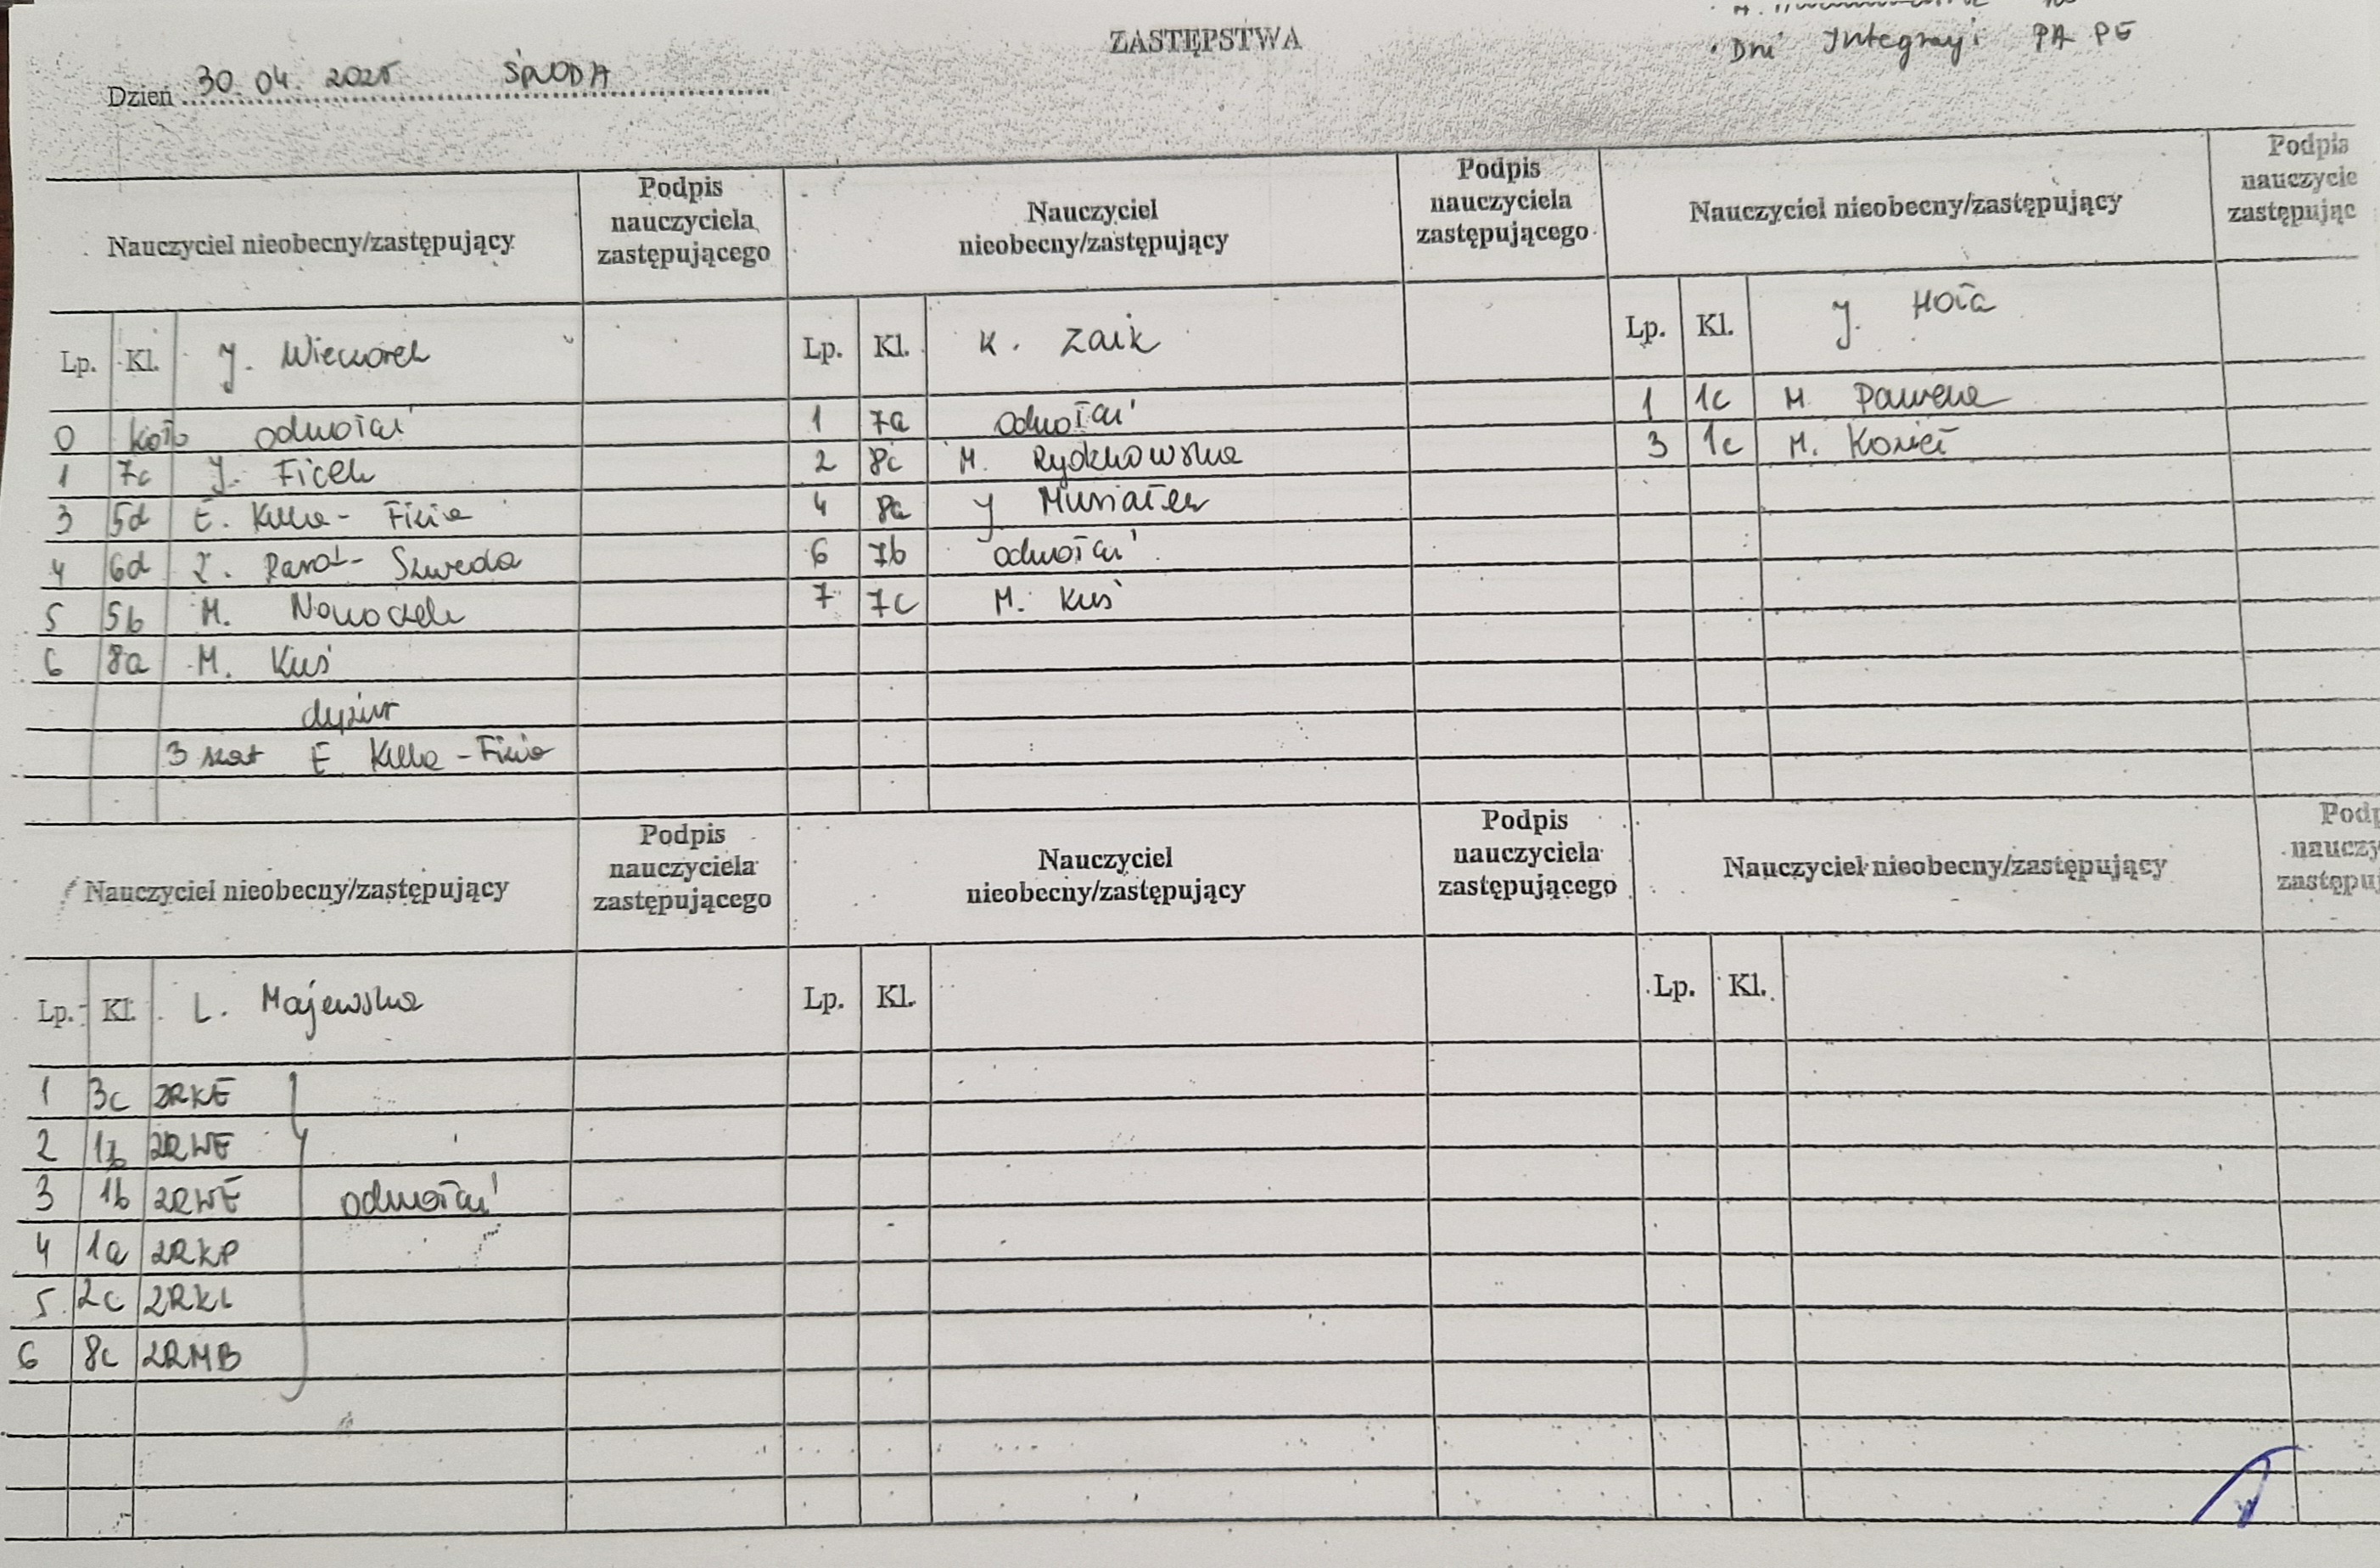 ZASTĘPSTWA
• Dni Integracji PA PE
Dzień 30. 04. 2025 ŚRODA
Nauczyciel nieobecny/zastępujący
Podpis
nauczyciela
zastępującego
Nauczyciel
nieobecny/zastępujący
Podpis
nauczyciela
zastępującego
Nauczyciel nieobecny/zastępujący
Podpis
nauczycie
zastępując
Lp. Kl. J. Wieczorek
0 koło odwołać
1 7c J. Ficek
3 5d E. Kulka-Fizia
4 6d Szweda
5 5b M. Nowoczek
6 8a M. Kuś
dyżur
3 szat E Kulka-Fizia
Lp. Kl. K. Zaik
1 7a odwołać
2 8c M. Rydzkowska
4 8a J Musiałek
6 7b odwołać
7 7c M. Kuś
Lp. Kl. J. Hoła
1 1c M
3 1c M. Kozieł
Nauczyciel nieobecny/zastępujący
Podpis
nauczyciela
zastępującego
Nauczyciel
nieobecny/zastępujący
Podpis
nauczyciela
zastępującego
Nauczyciel nieobecny/zastępujący
Podp
nauczy
zastępuj
Lp. Kl. L. Majewska
1 3c ZRKE
2 1b ZRWE
3 1b ZRWE odwołać
4 1a ZRKP
5 2c ZRKL
6 8c ZRMB
Lp. Kl.
Lp. Kl.